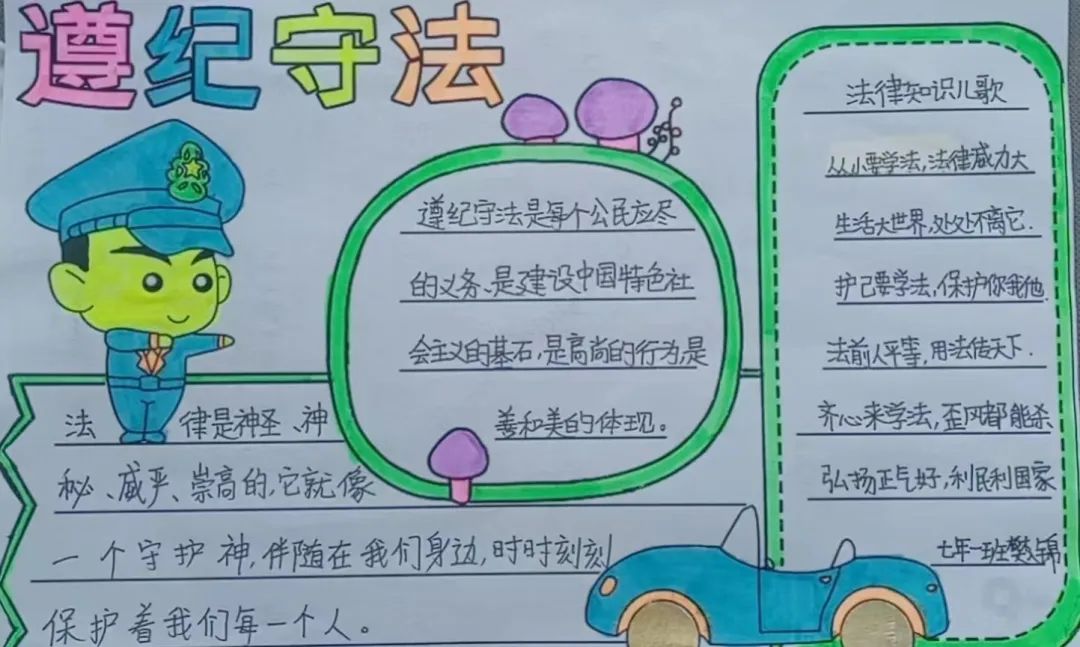 遵纪守法
遵纪守法是每个公民应尽
的义务、是建设中国特色社
会主义的基石,是高尚的行为,是
善和美的体现。
法律是神圣、神
秘、威严、崇高的,它就像
一个守护神,伴随在我们身边,时时刻刻
保护着我们每一个人。
法律知识儿歌
从小要学法,法律威力大
生活大世界,处处不离它.
护己要学法,保护你我他.
法前人平等,用法传天下.
齐心来学法,歪风都能杀
弘扬正气好,利民利国家
七年一班樊锦